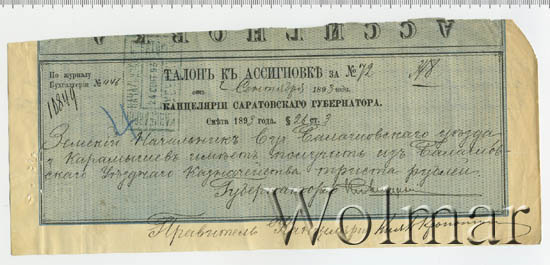 АССИГНОВКА
По журналу
Бухгалтеріи № 446
10844
ТАЛОНЪ КЪ АССИГНОВКѢ за № 72
отъ 2 Сентября 1893 года.
КАНЦЕЛЯРІИ САРАТОВСКАГО ГУБЕРНАТОРА.
Смѣта 1893 года. § 26 ст. 3
Земскій Начальникъ 6 уч. Балашовскаго уѣзда
Карамышевъ имѣетъ получить изъ Балашов-
скаго Уѣзднаго Казначейства триста рублей.
Губернаторъ
Правитель Канцеляріи
Wolmar